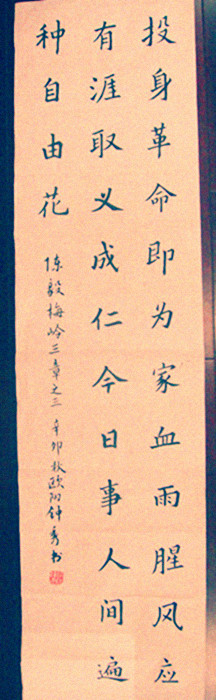 投身革命即为家血雨腥风应
有涯取义成仁今日事人间遍
种自由花
陈毅梅岭三章之三 辛卯秋欧阳钟秀书